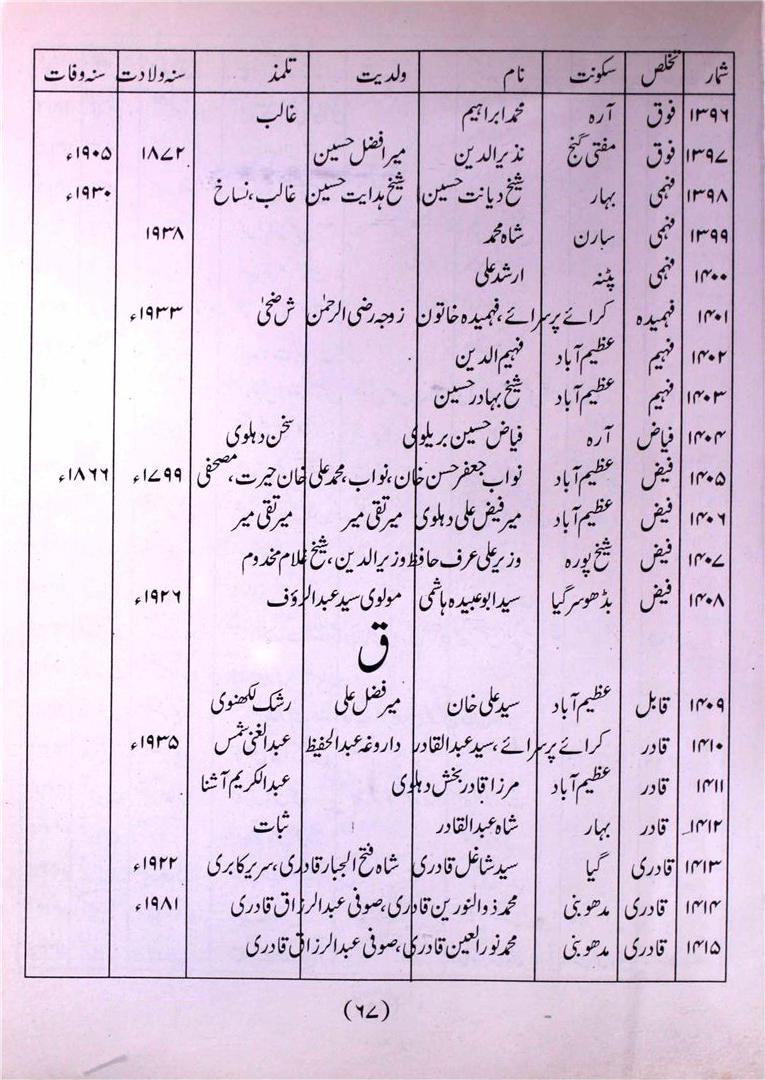 شمار تخلص سکونت نام ولدیت تلمذ سنہ ولادت سنہ وفات
۱۳۹۶ فوق آرہ محمد ابراہیم غالب
۱۳۹۷ فوق مفتی گنج نذیر الدین میر افضل حسین ۱۸۷۲ ۱۹۰۵ء
۱۳۹۸ فہمی بہار شیخ دیانت حسین شیخ ہدایت حسین غالب، نساخ ۱۹۳۰ء
۱۳۹۹ فہمی سارن شاہ محمد ۱۹۳۸
۱۴۰۰ فہمی پٹنہ ارشد علی
۱۴۰۱ فہمیدہ کرائے پرسرائے، فہمیدہ خاتون زوجہ رضی الرحمٰن ش ضحیٰ ۱۹۳۳ء
۱۴۰۲ فہیم عظیم آباد فہیم الدین
۱۴۰۳ فہیم عظیم آباد شیخ بہادر حسین
۱۴۰۴ فیاض آرہ فیاض حسین بریلوی سخن دہلوی
۱۴۰۵ فیض عظیم آباد نواب جعفر حسن خان، نواب، محمد علی خان حیرت، مصحفی ۱۷۹۹ء ۱۸۶۶ء
۱۴۰۶ فیض عظیم آباد میر فیض علی دہلوی میر تقی میر میر تقی میر
۱۴۰۷ فیض شیخ پورہ وزیر علی عرف حافظ وزیر الدین، شیخ غلام مخدوم
۱۴۰۸ فیض بڈھوسر گیا سید ابو عبیدہ ہاشمی مولوی سید عبد الرؤف ۱۹۲۶ء
ق
۱۴۰۹ قابل عظیم آباد سید علی خان میر فضل علی رشک لکھنوی
۱۴۱۰ قادر کرائے پرسرائے، سید عبد القادر داروغہ عبد الحفیظ عبد الغنی شمس ۱۹۳۵ء
۱۴۱۱ قادر عظیم آباد مرزا قادر بخش دہلوی عبد الکریم آشنا
۱۴۱۲ قادر بہار شاہ عبد القادر ثبات
۱۴۱۳ قادری گیا سید شاغل قادری شاہ فتح الجبار قادری، سریر کابری ۱۹۲۲ء
۱۴۱۴ قادری مدھوبنی محمد ذو النورین قادری، صوفی عبد الرزاق قادری ۱۹۸۱ء
۱۴۱۵ قادری مدھوبنی محمد نور العین قادری، صوفی عبد الرزاق قادری
(۶۷)